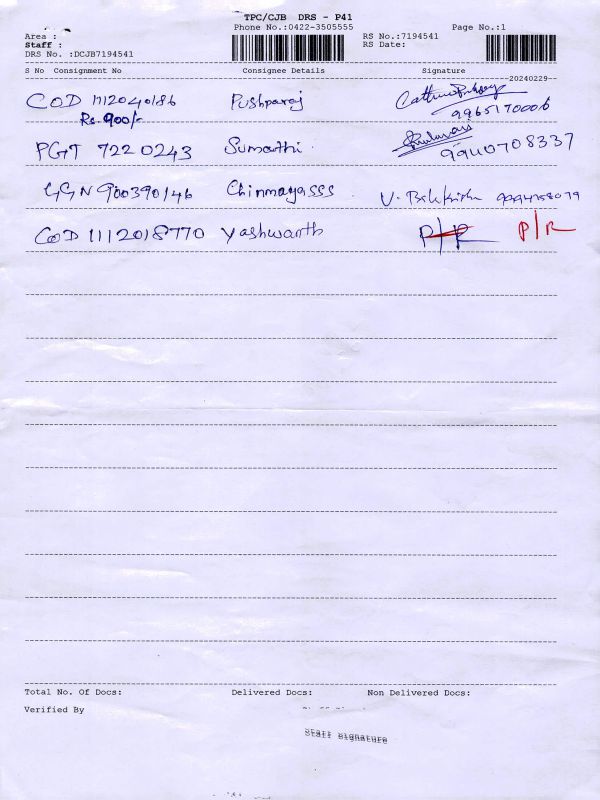 TPC/CJB DRS - P41
Phone No.:0422-3505555 Page No.:1
Area : RS No.:7194541
Staff : RS Date:
DRS No. :DCJB7194541
S No Consignment No Consignee Details Signature
20240229
COD 1112040186 Pushparaj
Rs. 900/- 9965170006
PGT 7220243 Sumathi 9940708337
GGN 900390146 Chinmayasss V.
COD 1112018770 Yashwanth P/R P/R
Total No. Of Docs: Delivered Docs: Non Delivered Docs:
Verified By
Staff Signature